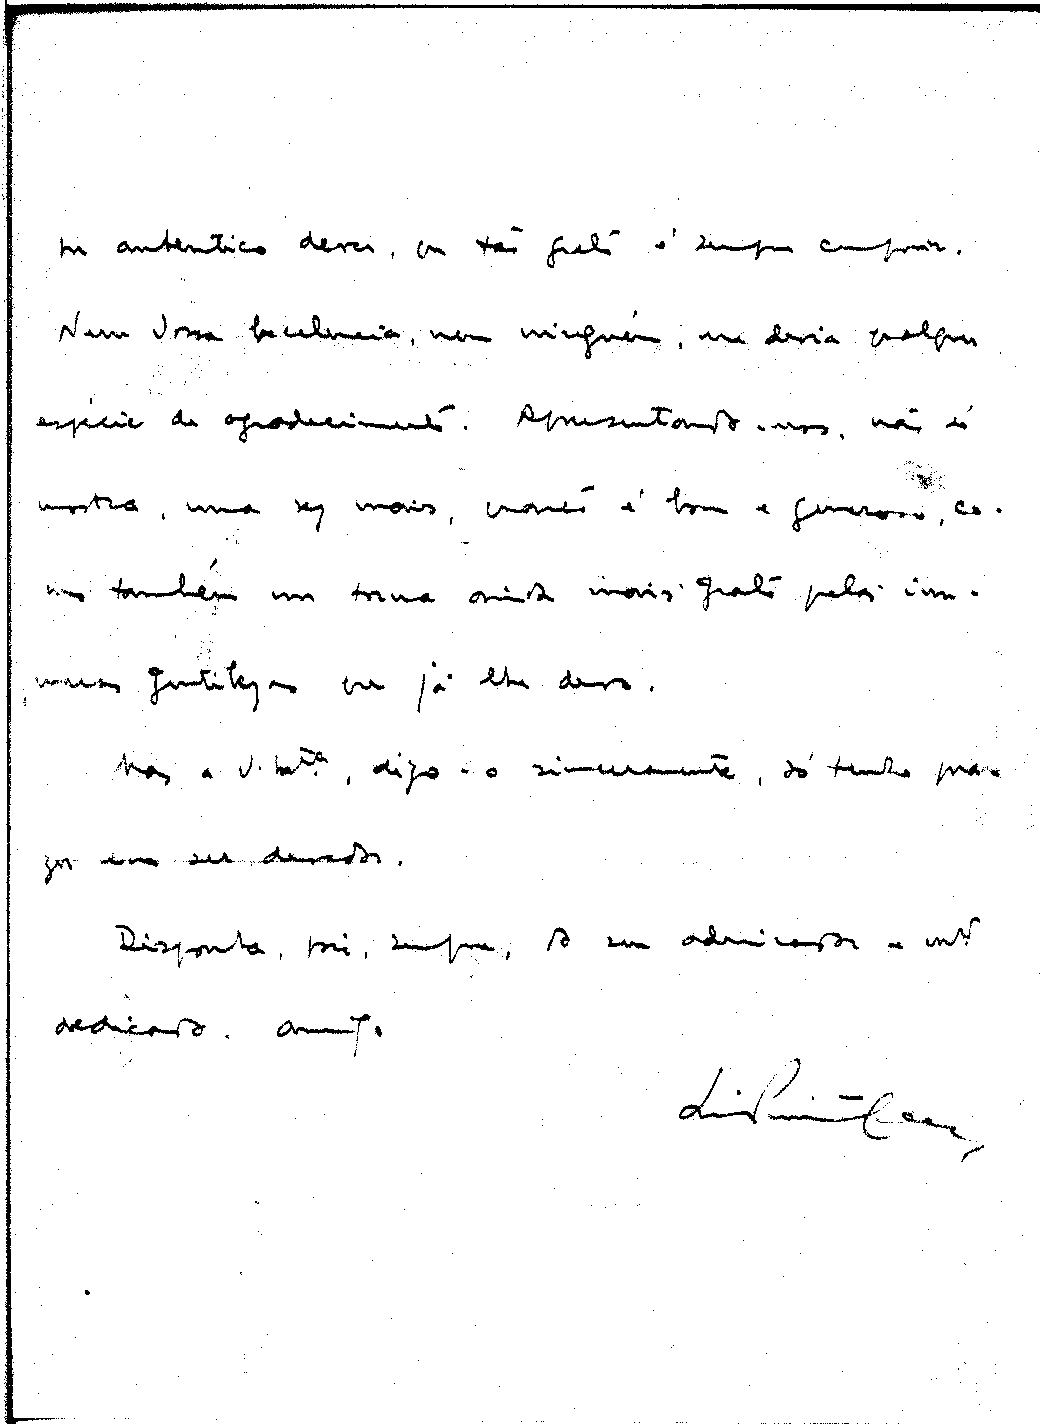 um autentico dever, que tão grato é sempre cumprir.
Nem Vossa Excelencia, nem ninguém, me devia qualquer
espécie de agradecimento. Apresentando-nos, não só
mostra, uma vez mais, quanto é bom e generoso, co-
mo também me torna ainda mais grato pelas inu-
meras gentilezas que já lhe devo.
Mas a V. Exª., digo-o sinceramente, só tenho pra-
zer em ser devedor.
Disponha, pois, sempre, do seu admirador e mtº
dedicado. amigo
Luis Pinto Coelho